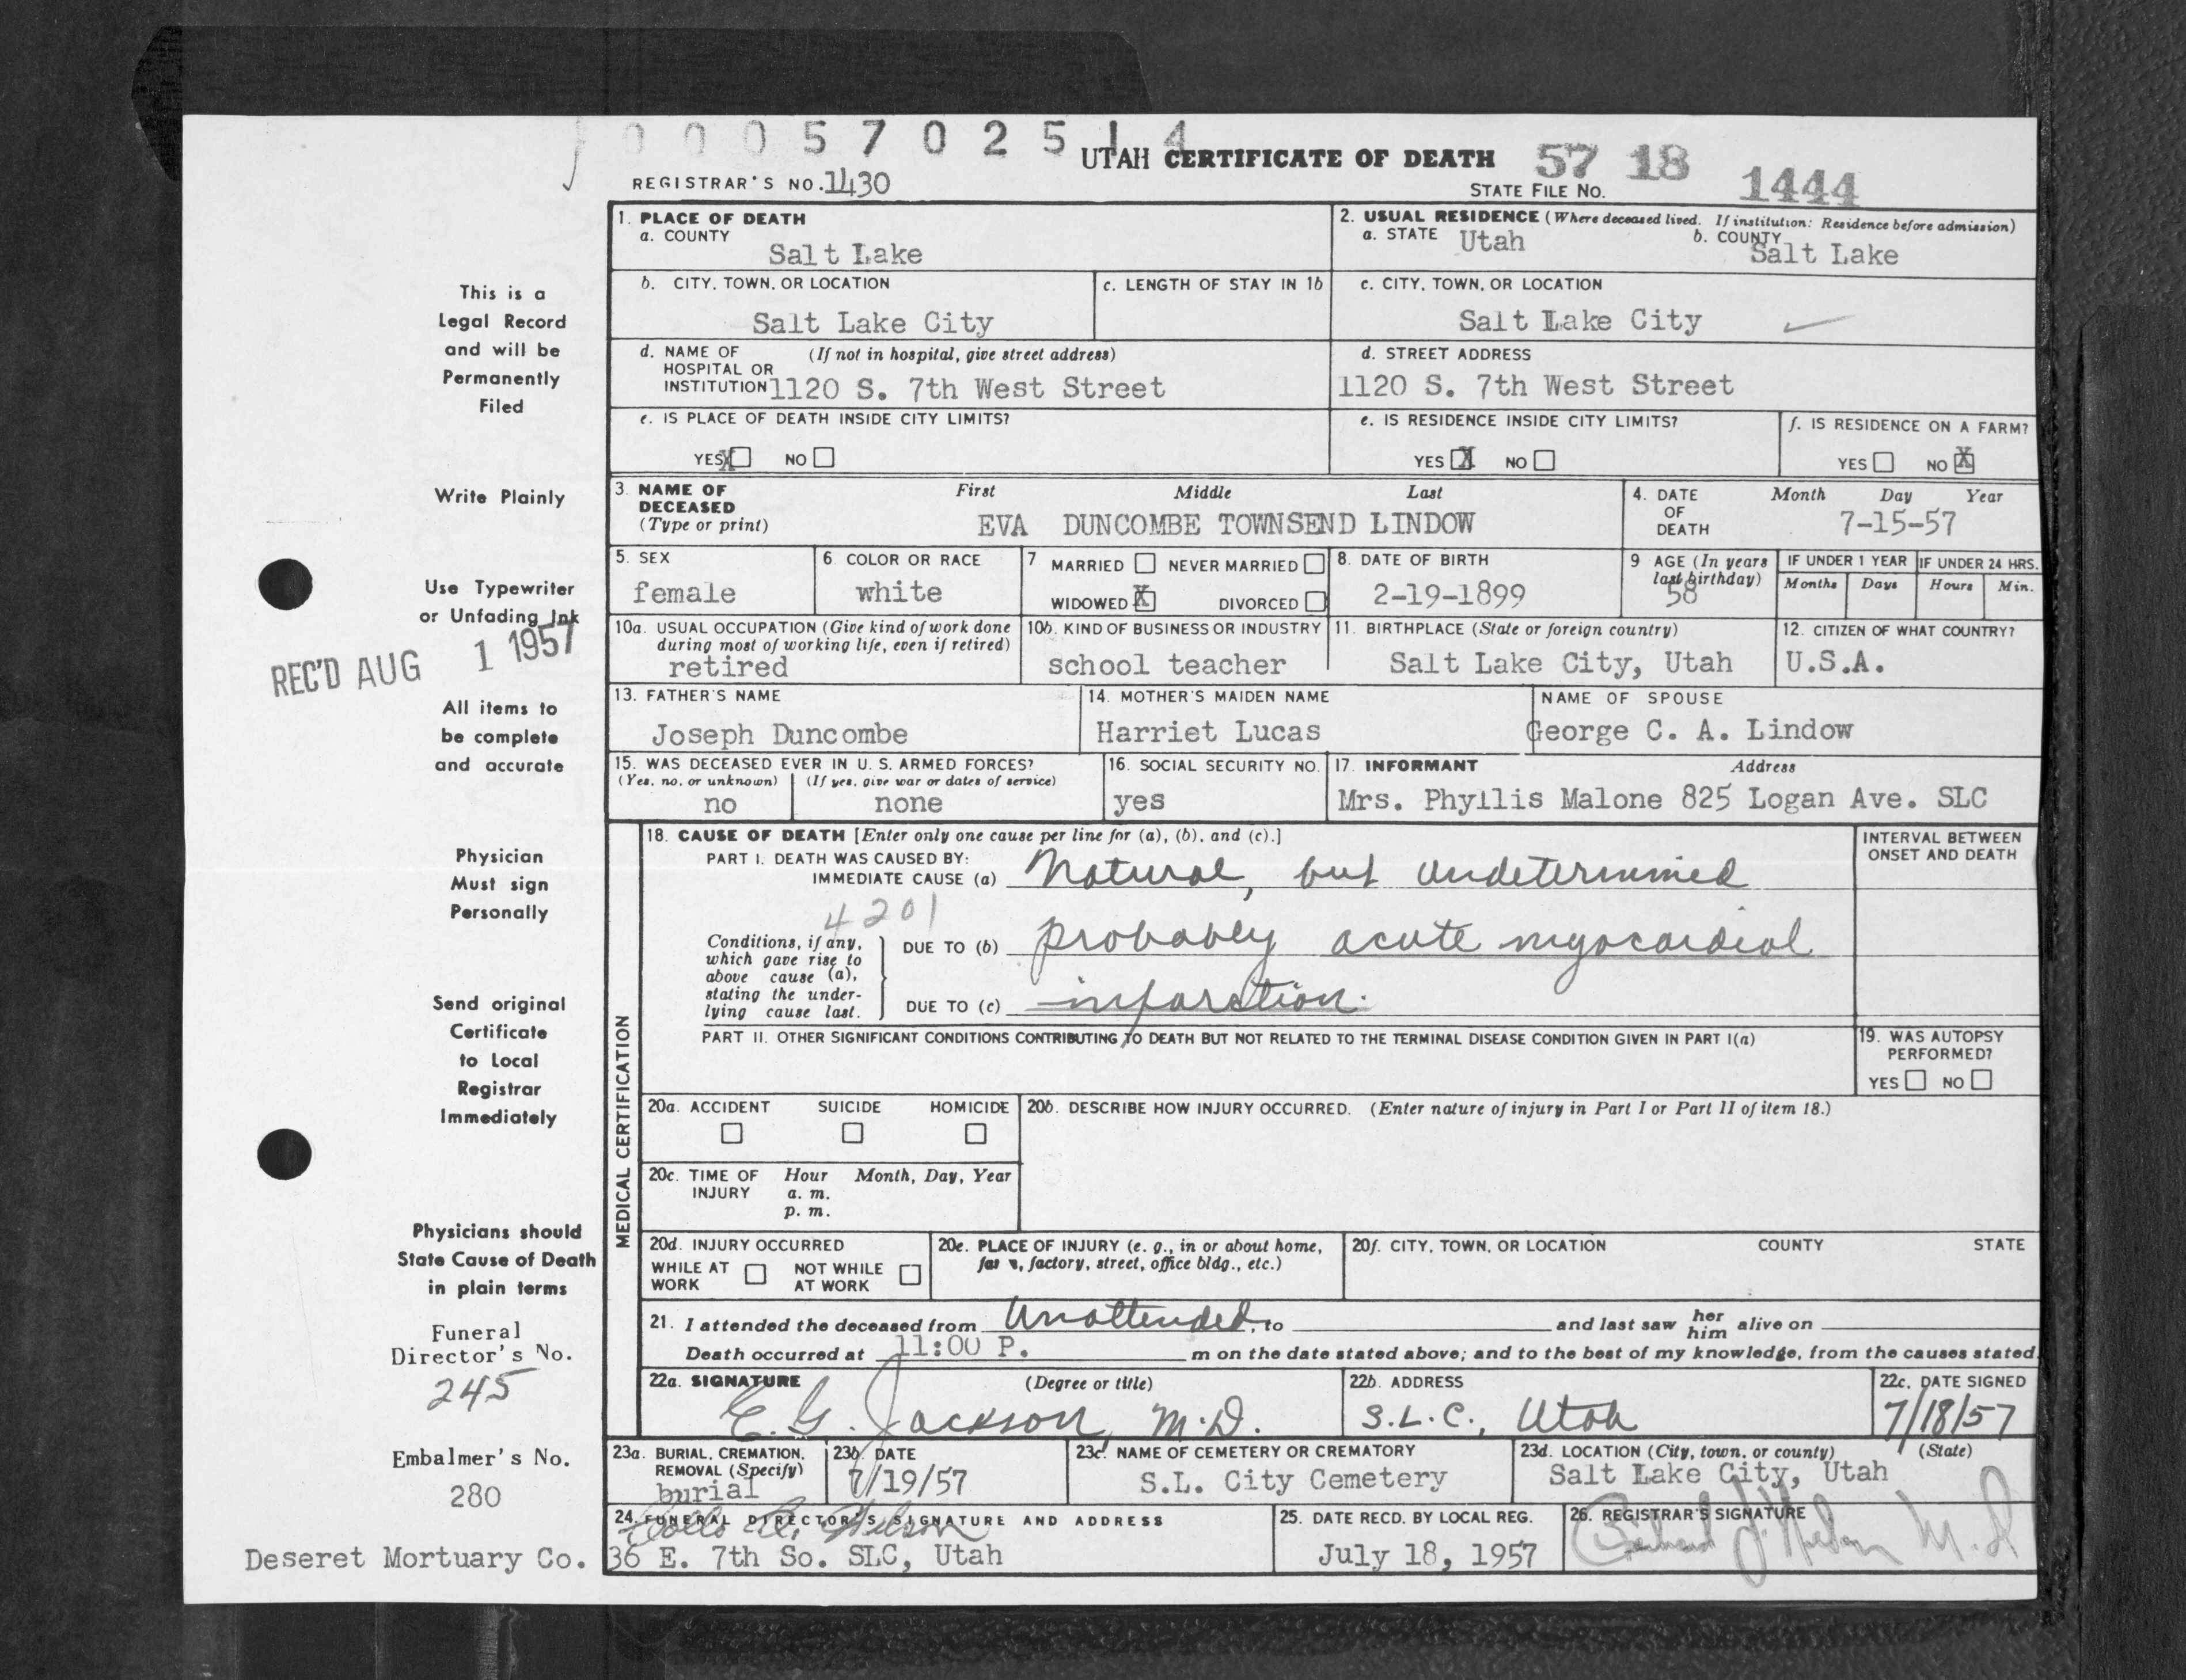 0 0 0 5 7 0 2 5 1 4
UTAH CERTIFICATE OF DEATH
57 18 1444
REGISTRAR'S NO. 1430
STATE FILE NO.
1. PLACE OF DEATH
a. COUNTY
Salt Lake
2. USUAL RESIDENCE (Where deceased lived. If institution: Residence before admission)
a. STATE Utah b. COUNTY Salt Lake
b. CITY, TOWN, OR LOCATION
Salt Lake City
c. LENGTH OF STAY IN 1b
c. CITY, TOWN, OR LOCATION
Salt Lake City
d. NAME OF (If not in hospital, give street address)
HOSPITAL OR
INSTITUTION 1120 S. 7th West Street
d. STREET ADDRESS
1120 S. 7th West Street
e. IS PLACE OF DEATH INSIDE CITY LIMITS?
YES X NO
e. IS RESIDENCE INSIDE CITY LIMITS?
YES X NO
f. IS RESIDENCE ON A FARM?
YES NO X
3. NAME OF DECEASED (Type or print)
First Middle Last
EVA DUNCOMBE TOWNSEND LINDOW
4. DATE OF DEATH
Month Day Year
7-15-57
5. SEX
female
6 COLOR OR RACE
white
7 MARRIED NEVER MARRIED
WIDOWED X DIVORCED
8. DATE OF BIRTH
2-19-1899
9 AGE (In years last birthday)
58
IF UNDER 1 YEAR
Months Days
IF UNDER 24 HRS.
Hours Min.
10a. USUAL OCCUPATION (Give kind of work done during most of working life, even if retired)
retired
10b. KIND OF BUSINESS OR INDUSTRY
school teacher
11. BIRTHPLACE (State or foreign country)
Salt Lake City, Utah
12. CITIZEN OF WHAT COUNTRY?
U.S.A.
13. FATHER'S NAME
Joseph Duncombe
14. MOTHER'S MAIDEN NAME
Harriet Lucas
NAME OF SPOUSE
George C. A. Lindow
15. WAS DECEASED EVER IN U. S. ARMED FORCES?
(Yes, no, or unknown) (If yes, give war or dates of service)
no none
16. SOCIAL SECURITY NO.
yes
17. INFORMANT Address
Mrs. Phyllis Malone 825 Logan Ave. SLC
MEDICAL CERTIFICATION
18. CAUSE OF DEATH [Enter only one cause per line for (a), (b), and (c).]
PART I. DEATH WAS CAUSED BY:
IMMEDIATE CAUSE (a) Natural, but undetermined
4201
Conditions, if any, which gave rise to above cause (a), stating the under- lying cause last.
DUE TO (b) probably acute myocardial
DUE TO (c) infarction.
INTERVAL BETWEEN ONSET AND DEATH
PART II. OTHER SIGNIFICANT CONDITIONS CONTRIBUTING TO DEATH BUT NOT RELATED TO THE TERMINAL DISEASE CONDITION GIVEN IN PART I(a)
19. WAS AUTOPSY PERFORMED?
YES NO
20a. ACCIDENT SUICIDE HOMICIDE
20b. DESCRIBE HOW INJURY OCCURRED. (Enter nature of injury in Part I or Part II of item 18.)
20c. TIME OF INJURY
Hour Month, Day, Year
a. m.
p. m.
20d. INJURY OCCURRED
WHILE AT WORK NOT WHILE AT WORK
20e. PLACE OF INJURY (e. g., in or about home, farm, factory, street, office bldg., etc.)
20f. CITY, TOWN, OR LOCATION COUNTY STATE
21. I attended the deceased from Unattended, to and last saw her him alive on
Death occurred at 11:00 P. m on the date stated above; and to the best of my knowledge, from the causes stated
22a. SIGNATURE (Degree or title)
E. G. Jackson, M.D.
22b. ADDRESS
S.L.C., Utah
22c. DATE SIGNED
7/18/57
23a. BURIAL, CREMATION, REMOVAL (Specify)
burial
23b. DATE
7/19/57
23c. NAME OF CEMETERY OR CREMATORY
S.L. City Cemetery
23d. LOCATION (City, town, or county) (State)
Salt Lake City, Utah
24. FUNERAL DIRECTOR'S SIGNATURE AND ADDRESS
Deseret Mortuary Co. 36 E. 7th So. SLC, Utah
25. DATE RECD. BY LOCAL REG.
July 18, 1957
26. REGISTRAR'S SIGNATURE
M.D.
This is a
Legal Record
and will be
Permanently
Filed
Write Plainly
Use Typewriter
or Unfading Ink
REC'D AUG 1 1957
All items to
be complete
and accurate
Physician
Must sign
Personally
Send original
Certificate
to Local
Registrar
Immediately
Physicians should
State Cause of Death
in plain terms
Funeral
Director's No.
245
Embalmer's No.
280